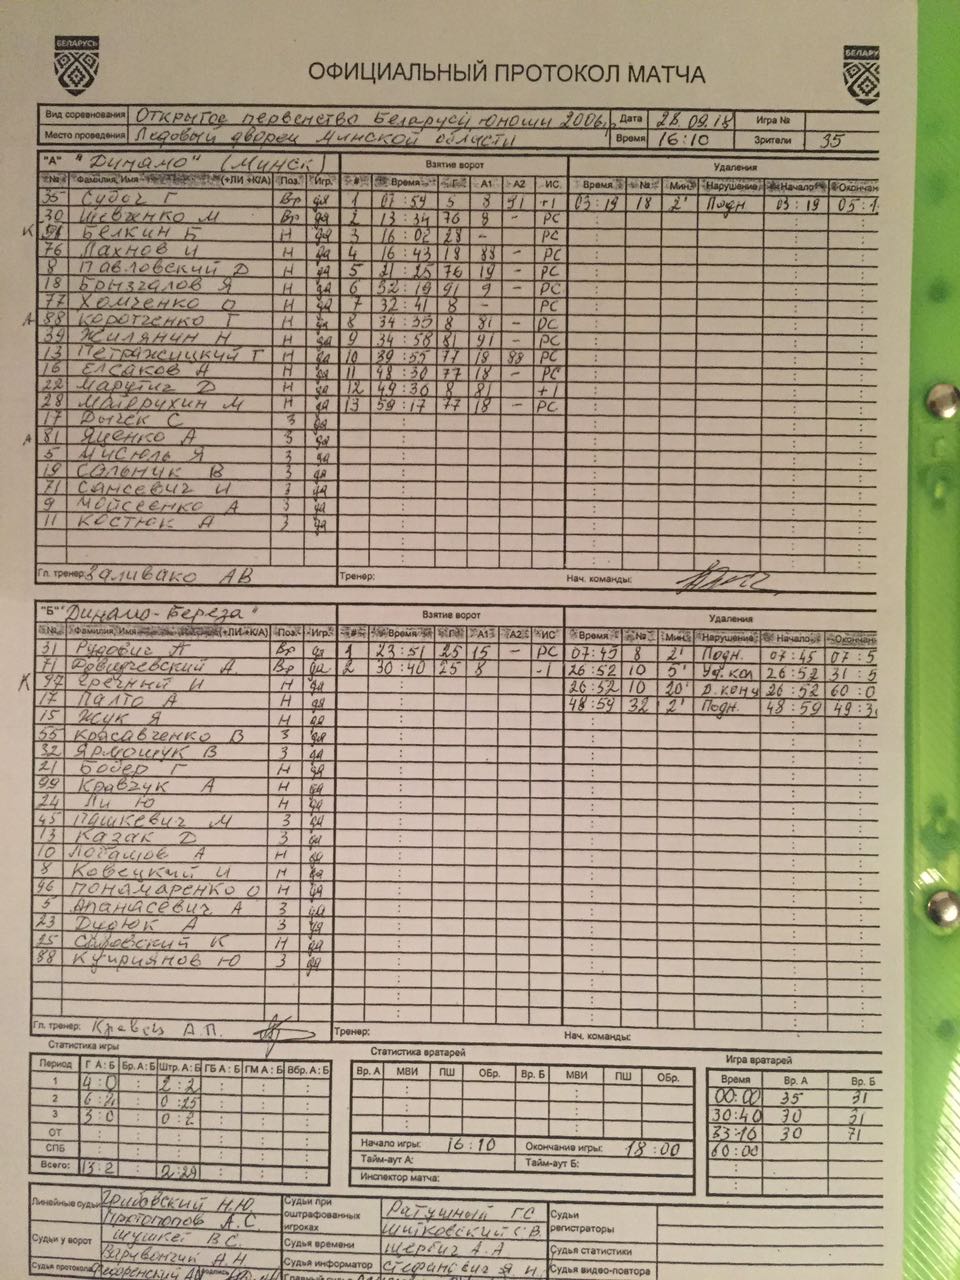 БЕЛАРУСЬ
ОФИЦИАЛЬНЫЙ ПРОТОКОЛ МАТЧА
Вид соревнования Открытое первенство Беларуси юноши 2006г. Дата 28.09.18 Игра №
Место проведения Ледовый дворец Минской области Время 16:10 Зрители 35
"А" "Динамо" (Минск) Взятие ворот Удаления
№ Фамилия, Имя (+ЛИ +К/А) Поз. Игр. # Время Г А1 А2 ИС Время № Мин. Нарушение Начало Окончан
35 Субоч Г Вр да 1 07:59 5 8 91 +1 03:19 18 2' Подн 03:19 05:1
30 Шевченко М Вр да 2 13:34 76 8 - РС
К 91 Белкин Б Н да 3 16:02 28 - РС
76 Лахнов И Н да 4 16:43 18 88 - РС
8 Павловский Д Н да 5 21:25 76 19 - РС
18 Брызгалов Я Н да 6 32:19 91 9 - РС
77 Хомченко О Н да 7 32:41 8 - РС
А 88 Коротченко Т Н да 8 34:35 8 81 - РС
39 Жилянин Н Н да 9 34:58 81 91 - РС
13 Петражицкий Т Н да 10 39:55 77 18 88 РС
16 Елсаков А Н да 11 48:30 77 18 - РС
22 Марутич Д Н да 12 49:30 8 81 +1
28 Матерухин М Н да 13 59:17 77 18 - РС
17 Дычек С З да
А 81 Яценко А З да
5 Мисюль Я З да
19 Сальник В З да
71 Сансевич И З да
9 Мойсеенко А З да
11 Костюк А З да
Гл. тренер: Заливако АВ Тренер: Нач. команды:
"Б" "Динамо-Береза" Взятие ворот Удаления
№ Фамилия, Имя (+ЛИ +К/А) Поз. Игр. # Время Г А1 А2 ИС Время № Мин. Нарушение Начало Окончан
31 Рудович А Вр да 1 23:51 25 15 - РС 07:45 8 2' Подн. 07:45 07:5
71 А. Вр да 2 30:40 25 8 -1 26:52 10 5' Уд.кол 26:52 31:5
К 97 Гречный И Н да 26:52 10 20' Д.конц 26:52 60:0
17 Палто А Н да 48:59 32 2' Подн. 48:59 49:3
15 Жук Я Н да
55 Красавченко В З да
32 Ярмошук В З да
21 Бобер Г Н да
99 Кравчук А Н да
24 Ли Ю Н да
45 Пашкевич М З да
13 Казак Д З да
10 Логашов А Н да
8 Ковецкий И Н да
96 Понамаренко О Н да
5 Апанасевич А З да
23 Дудюк А З да
25 К Н да
88 Куприянов Ю З да
Гл. тренер: Кравец А.П. Тренер: Нач. команды:
Статистика игры Статистика вратарей Игра вратарей
Период Г А:Б Бр. А:Б Штр. А:Б ГБ А:Б ГМ А:Б Вбр. А:Б Вр. А МВИ ПШ ОБр. Вр. Б МВИ ПШ ОБр. Время Вр. А Вр. Б
1 4:0 2:2 00:00 35 31
2 6:2 0:25 30:40 30 31
3 3:0 0:2 33:16 30 71
ОТ 60:00
СПБ Начало игры: 16:10 Окончание игры: 18:00
Всего: 13:2 2:29 Тайм-аут А: Тайм-аут Б:
Инспектор матча:
Линейные судьи Грибовский Н.Ю. Судьи при оштрафованных игроках Ратушный ГС Судьи регистраторы
Протопопов А.С. Шитковский С.В.
Судьи у ворот Шушкет В.С. Судья времени Щербич А.А Судья статистики
Варувончич А.Н Судья информатор Стефанович Я Н. Судья видео-повтора
Судья протокола